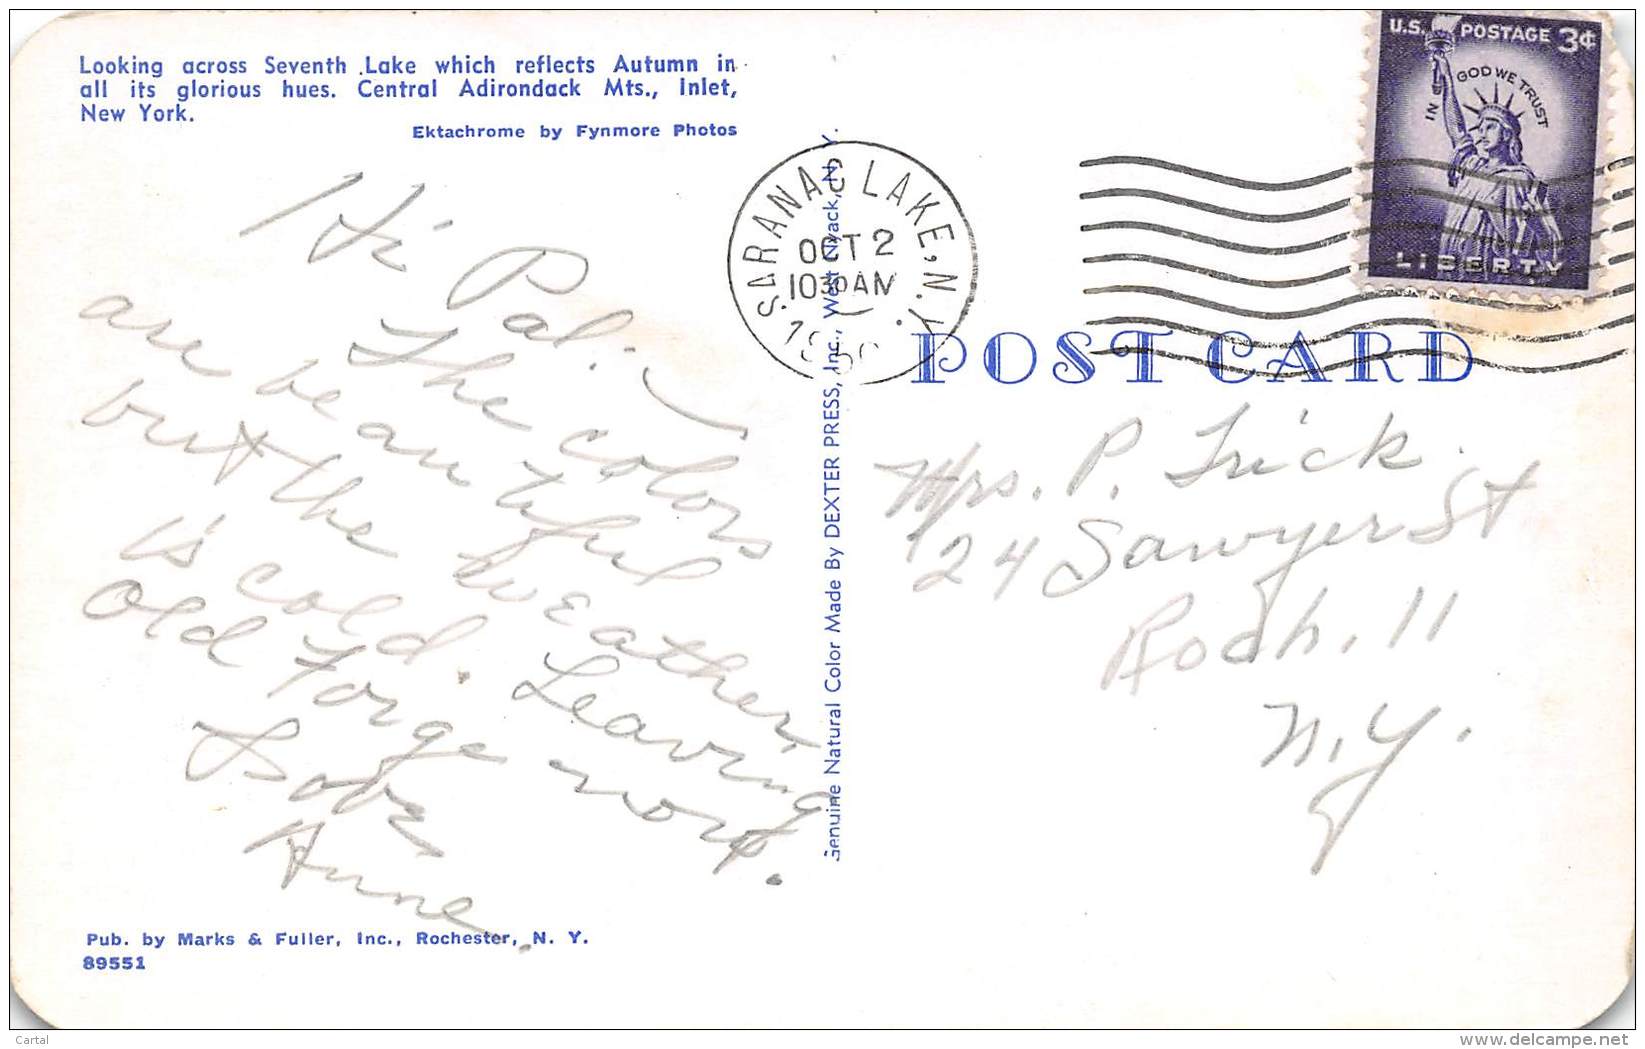 Looking across Seventh Lake which reflects Autumn in
all its glorious hues. Central Adirondack Mts., Inlet,
New York.
Ektachrome by Fynmore Photos
Hi Pal. —
The colors
are beautiful
but the weather
is cold. Leaving
Old Forge now.
Love
Anne.
Pub. by Marks & Fuller, Inc., Rochester, N. Y.
89551
Genuine Natural Color Made By DEXTER PRESS, Inc., West Nyack, N. Y.
SARANAC LAKE, N.Y.
OCT 2
1030 AM
U.S. POSTAGE 3¢
IN GOD WE TRUST
LIBERTY
POST CARD
Mrs. P. Frick
24 Sawyer St
Roch. 11
N.Y.
Cartal
www.delcampe.net